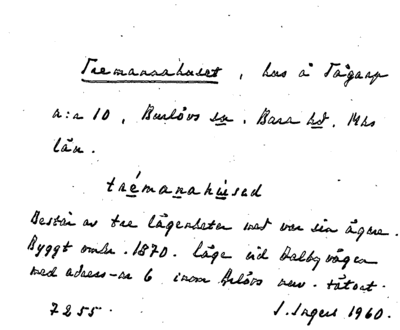 Tremannahuset, hus å Tågarp
n:r 10, Burlövs sn, Bara hd, Mhs
län.
trémanahúsed
Består av tre lägenheter med var sin ägare.
Byggt omkr. 1870. Läge vid Dalbyvägen
med adress-nr 6 inom Arlövs mun. tätort.
7255. S. Ingers 1960.